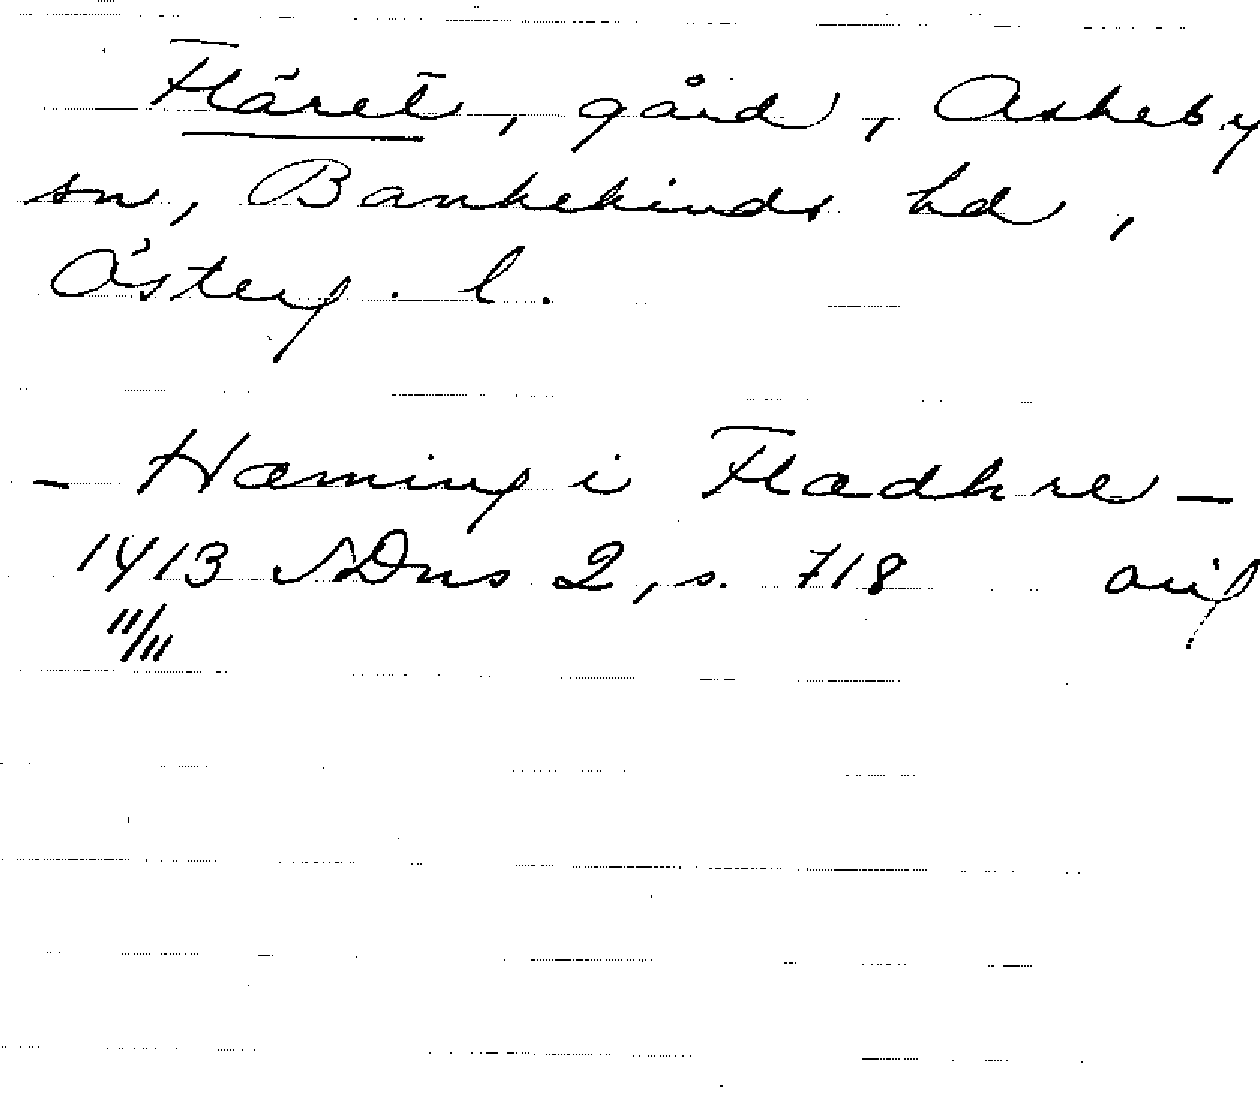 Fläret, gård, Askeby
sn, Bankekinds hd,
Österg. l.
- Hæming i Flædhre -
1413 SDns 2, s. 718 orig
11/11